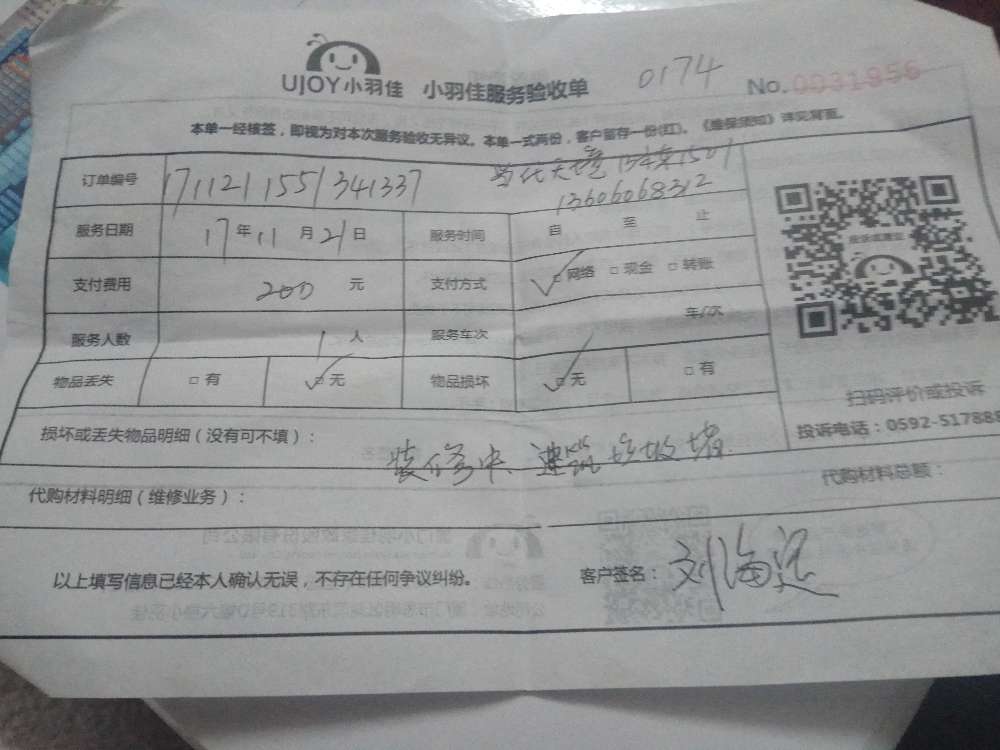 UJOY小羽佳 小羽佳服务验收单 0174 No.0031956
本单一经核签，即视为对本次服务验收无异议。本单一式两份，客户留存一份(红)。《维保须知》详见背面。
订单编号 1711211551341337 当代天境 1501
13606068312
服务日期 17年11月21日 服务时间 自 至 止
支付费用 200 元 支付方式 网络 现金 转账
服务人数 1人 服务车次 车/次
物品丢失 有 无 物品损坏 无 有
扫码评价或投诉
投诉电话：0592-51788
损坏或丢失物品明细（没有可不填）：
装修中、建筑垃圾堵
代购材料明细（维修业务）： 代购材料总额：
以上填写信息已经本人确认无误，不存在任何争议纠纷。 客户签名：刘海